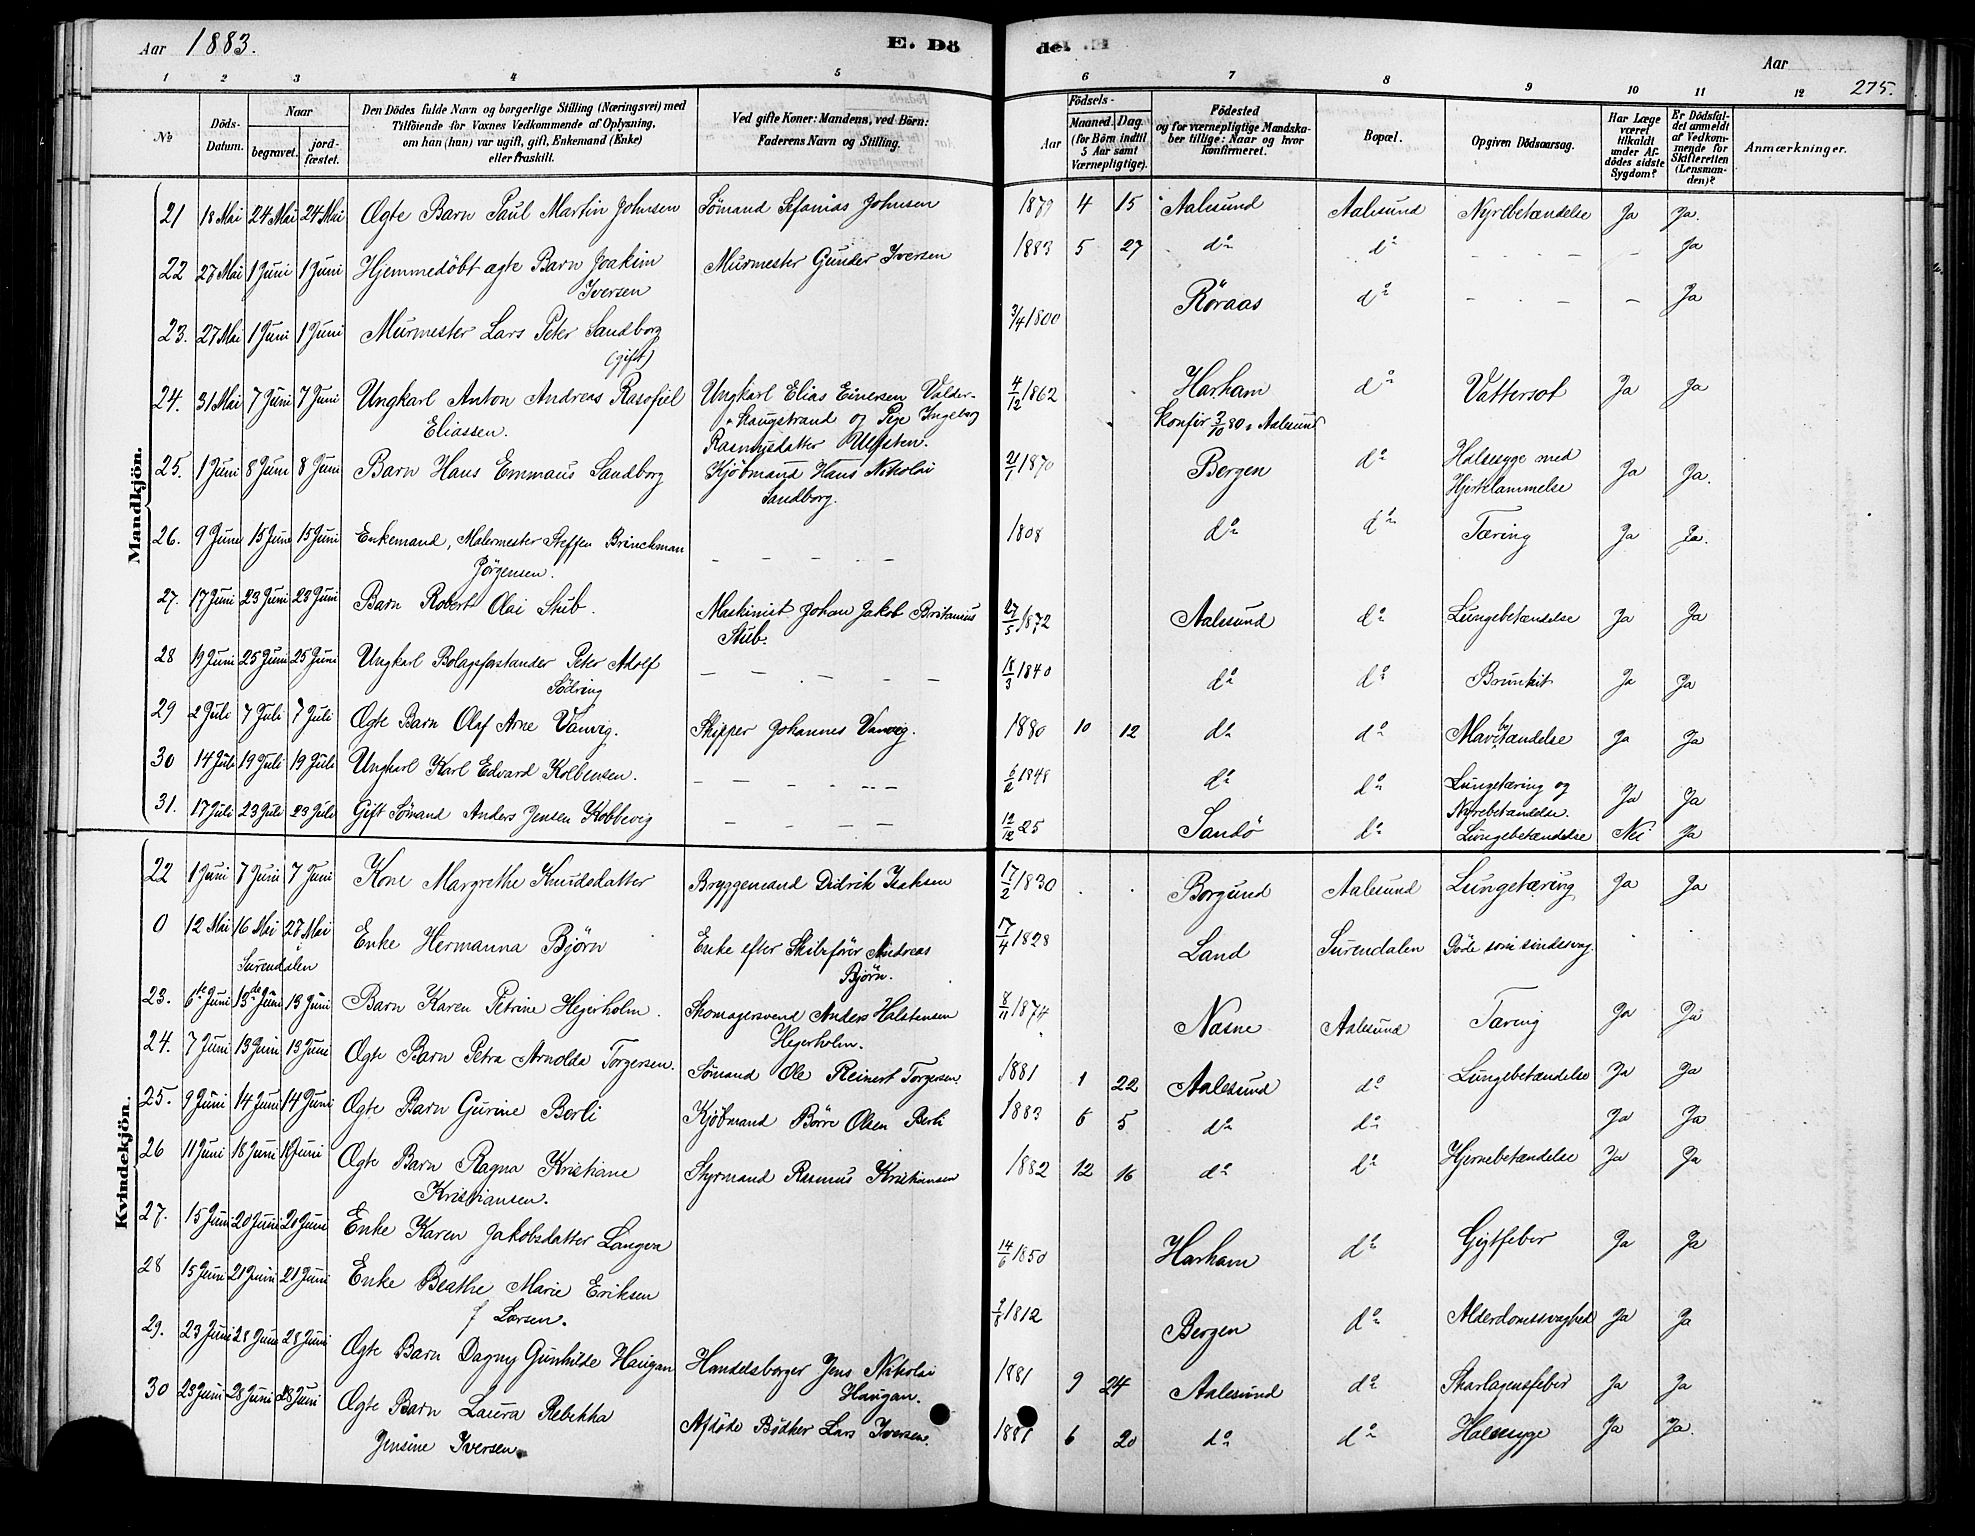 Aar 1883.
E. Dö
de. E
Aar
275.
1 2 3 4 5 6 7 8 9 10 11 12
No
Döds-Datum.
Naar
begravet.
jord-fæstet.
Den Dödes fulde Navn og borgerlige Stilling (Næringsvei) med
Tilföiende for Voxnes Vedkommende af Oplysning,
om han (hun) var ugift, gift, Enkemand (Enke)
eller fraskilt.
Ved gifte Koner: Mandens, ved Börn:
Faderens Navn og Stilling.
Födsels-
Aar
Maaned. Dag.
(for Börn indtil
5 Aar samt
Værnepligtige).
Födested
og for værnepligtige Mandska-
ber tillige: Naar og hvor
konfirmeret.
Bopæl.
Opgiven Dödsaarsag.
Har Læge
været
tilkaldt
under Af-
dödes sidste
Sygdom?
Er Dödsfal-
det anmeldt
af Vedkom-
mende for
Skifteretten
(Lensman-
den)?
Anmærkninger.
Mandkjön.
21 18 Mai 24 Mai 24 Mai Ægte Barn Paul Martin Johnsen Sømand Sefanias Johnsen 1879 4 15 Aalesund Aalesund Nyrebetændelse Ja Ja.
22 27 Mai 1 Juni 1 Juni Hjemmedöbt ægte Barn Joakim Murmester Gunder Iversen 1883 5 27 do do - - - - - Ja
Iversen
23. 27 Mai 1 Juni 1 Juni Murmester Lars Peter Sandborg 3/4 1800 Röraas do - - - - Ja
(gift)
24. 31 Mai 7 Juni 7 Juni Ungkarl Anton Andreas Rasofiel Ungkarl Elias Einersen Valder- 4/12 1862 Harham do Vattersot Ja Ja
Eliassen. Haugstrand og Pige Ingeborg Konfir 3/10 80 i Aalesund
Rasmusdatter Ulfsten.
25. 1 Juni 8 Juni 8 Juni Barn Hans Emmaus Sandborg Kjöbmand Hans Nikolai 21/1 1870 Bergen do Halssyge med Ja Ja.
Sandborg. Hjertelammelse
26. 9 Juni 15 Juni 15 Juni Enkemand, Malermester Steffen Brinchman - - - - 1808 do do Tæring Ja Ja.
Jörgensen.
27. 17 Juni 23 Juni 23 Juni Barn Robert Olai Stub. Maskinist Johan Jakob Britanius 27/5 1872 Aalesund do Lungebetændelse Ja Ja
Stub.
28 19 Juni 25 Juni 25 Juni Ungkarl Bolagsforstander Peter Adolf - - - - - 18/3 1840 do do Ja Ja
Södring
29 2 Juli 7 Juli 7 Juli Ægte Barn Olaf Arne Vanvig. Skipper Johannes Vanvig. 1880 10 12 do do Mavebetændelse Ja Ja
30 14 Juli 19 Juli 19 Juli Ungkarl Karl Edvard Kolbensen. - - - - - 6/2 1848 do do Lungetæring og Ja Ja
Nyrebetændelse.
31. 17 Juli 23 Juli 23 Juli Gift Sömand Anders Jensen Kobbevig - - - - - 12/12 25 Sandö do Lungebetændelse Nei Ja
Kvindekjön.
22 1 Juni 7 Juni 7 Juni Kone Margrethe Knudsdatter Bryggemand Didrik Isaksen 17/2 1830 . . Borgund Aalesund Lungetæring Ja Ja
0 12 Mai 16 Mai 28 Mai Enke Hermanna Björn Enke efter Skibsförer Andreas 17/4 1828 Land Surendalen Döde som sindssvag. . .
i Surendalen Björn.
23. 6te Juni 13de Juni 13 Juni Barn Karen Petrine Hegerholm. Skomagersvend Anders Halstensen 8/11 1874 Næsne Aalesund Tæring Ja Ja
Hegerholm.
24. 7 Juni 13 Juni 13 Juni Ægte Barn Petra Arnolda Torgersen. Sömand Ole Reinert Torgersen. 1881 1 22 Aalesund do Lungebetændelse Ja Ja
25. 9 Juni 14 Juni 14 Juni Ægte Barn Gurine Borli Kjöbmand Börre Olsen Berli 1883 6 5 do do Ja Ja
26 11 Juni 18 Juni 18 Juni Ægte Barn Ragna Kristiane Styrmand Rasmus Kristiansen 1882 12 16 do do Hjernebetændelse Ja Ja
Kristiansen.
27. 15 Juni 20 Juni 20 Juni Enke Karen Jakobsdatter Langva 14/6 1850 Harham do Gigtfeber Ja Ja
28 15 Juni 21 Juni 21 Juni Enke Beathe Marie Eriksen 9/8 1812 Bergen do Alderdomssvaghed Ja Ja
f Larsen.
29. 23 Juni 28 Juni 28 Juni Ægte Barn Dagny Gunhilde Haugan Handelsborger Jens Nikolai 1881 9 24 Aalesund do Skarlagensfeber Ja Ja
Haugan.
30 23 Juni 28 Juni 28 Juni Ægte Barn Laura Rebekka Afdöde Bödker Lars Iversen. 1881 6 20 do do Halssyge Ja Ja.
Jensine Iversen.